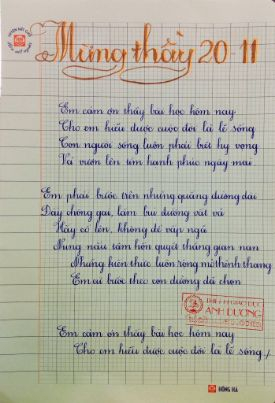 Mừng thầy 20-11
Em cảm ơn thầy bài học hôm nay
Cho em hiểu được cuộc đời là lẽ sống
Con người sống luôn phải biết hy vọng
Và vươn lên tìm hạnh phúc ngày mai
Em phải bước trên những quãng đường dài
Đầy chông gai, lắm bụi đường vất vả
Hãy cố lên, không để vấp ngã
Nung nấu tâm hồn quyết tháng gian nan
Những kiến thức luôn rộng mở thênh thang
Em cứ bước theo con đường đã chọn
ÁNH DƯƠNG
Em cảm ơn thầy bài học hôm nay
Cho em hiểu được cuộc đời là lẽ sống!
HỒNG HÀ